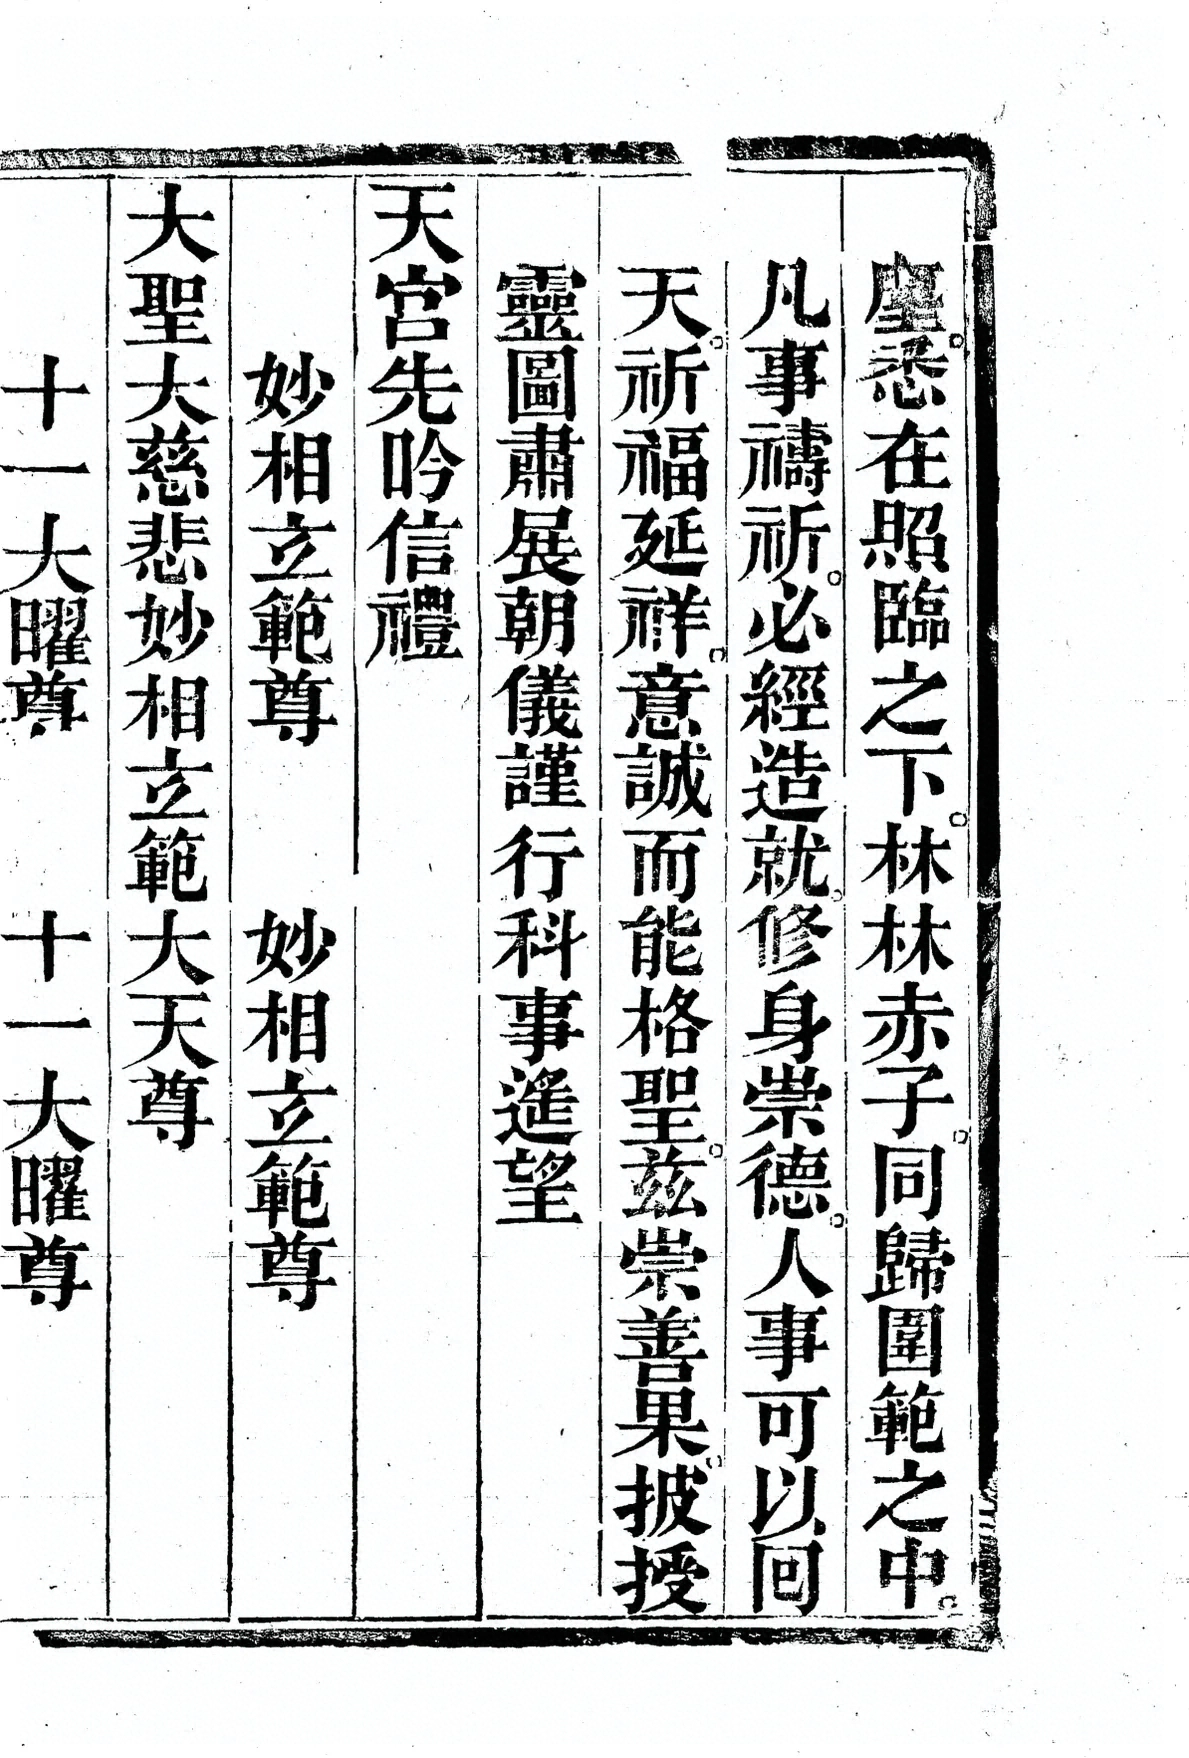 悉在照臨之下。林林赤子。同歸圍範之中。
凡事禱祈。必經造就。修身崇德。人事可以回
天。祈福延祥。意誠而能格聖。茲崇善果。披授
靈圖肅展朝儀謹行科事遙望
天宮先吟信禮
妙相立範尊　妙相立範尊
大聖大慈悲妙相立範大天尊
十一大曜尊　十一大曜尊